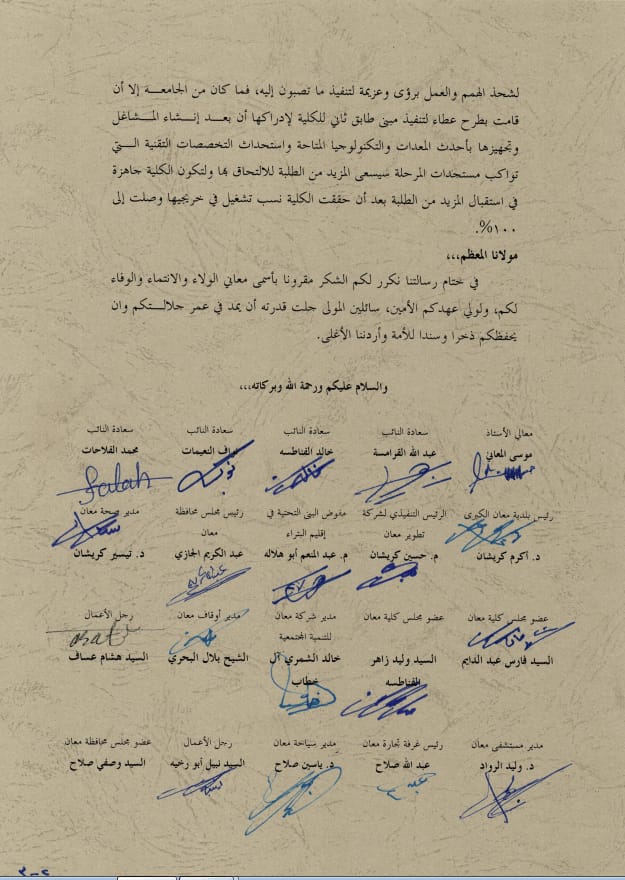 لشحذ الهمم والعمل برؤى وعزيمة لتنفيذ ما تصبون إليه، فما كان من الجامعة إلا أن
قامت بطرح عطاء لتنفيذ مبنى طابق ثاني للكلية لإدراكها أن بعد إنشاء المشاغل
وتجهيزها بأحدث المعدات والتكنولوجيا المتاحة واستحداث التخصصات التقنية التي
تواكب مستجدات المرحلة سيسعى المزيد من الطلبة للالتحاق بها ولتكون الكلية جاهزة
في استقبال المزيد من الطلبة بعد أن حققت الكلية نسب تشغيل في خريجيها وصلت إلى
١٠٠%.
مولانا المعظم،،،
في ختام رسالتنا نكرر لكم الشكر مقرونا بأسمى معاني الولاء والانتماء والوفاء
لكم، ولولي عهدكم الأمين، سائلين المولى جلت قدرته أن يمد في عمر جلالتكم وان
يحفظكم ذخرا وسندا للأمة وأردننا الأغلى.
والسلام عليكم ورحمة الله وبركاته،،،
معالي الأستاذ سعادة النائب سعادة النائب سعادة النائب سعادة النائب
موسى المعاني عبد الله القرامسة خالد الفناطسه نواف النعيمات محمد الفلاحات
Falah
رئيس بلدية معان الكبرى الرئيس التنفيذي لشركة مفوض البنى التحتية في رئيس مجلس محافظة مدير صحة معان
تطوير معان إقليم البتراء معان
د. أكرم كريشان م. حسين كريشان م. عبد المنعم أبو هلاله عبد الكريم الجازي د. تيسير كريشان
عضو مجلس كلية معان عضو مجلس كلية معان مدير شركة معان مدير أوقاف معان رجل الأعمال
للتنمية المجتمعية
السيد فارس عبد الدايم السيد وليد زاهر خالد الشمري آل الشيخ بلال البحري السيد هشام عساف
الفناطسه خطاب
مدير مستشفى معان رئيس غرفة تجارة معان مدير سياحة معان رجل الأعمال عضو مجلس محافظة معان
د. وليد الرواد عبد الله صلاح د. ياسين صلاح السيد نبيل أبو رخيه السيد وصفي صلاح
٢-٣